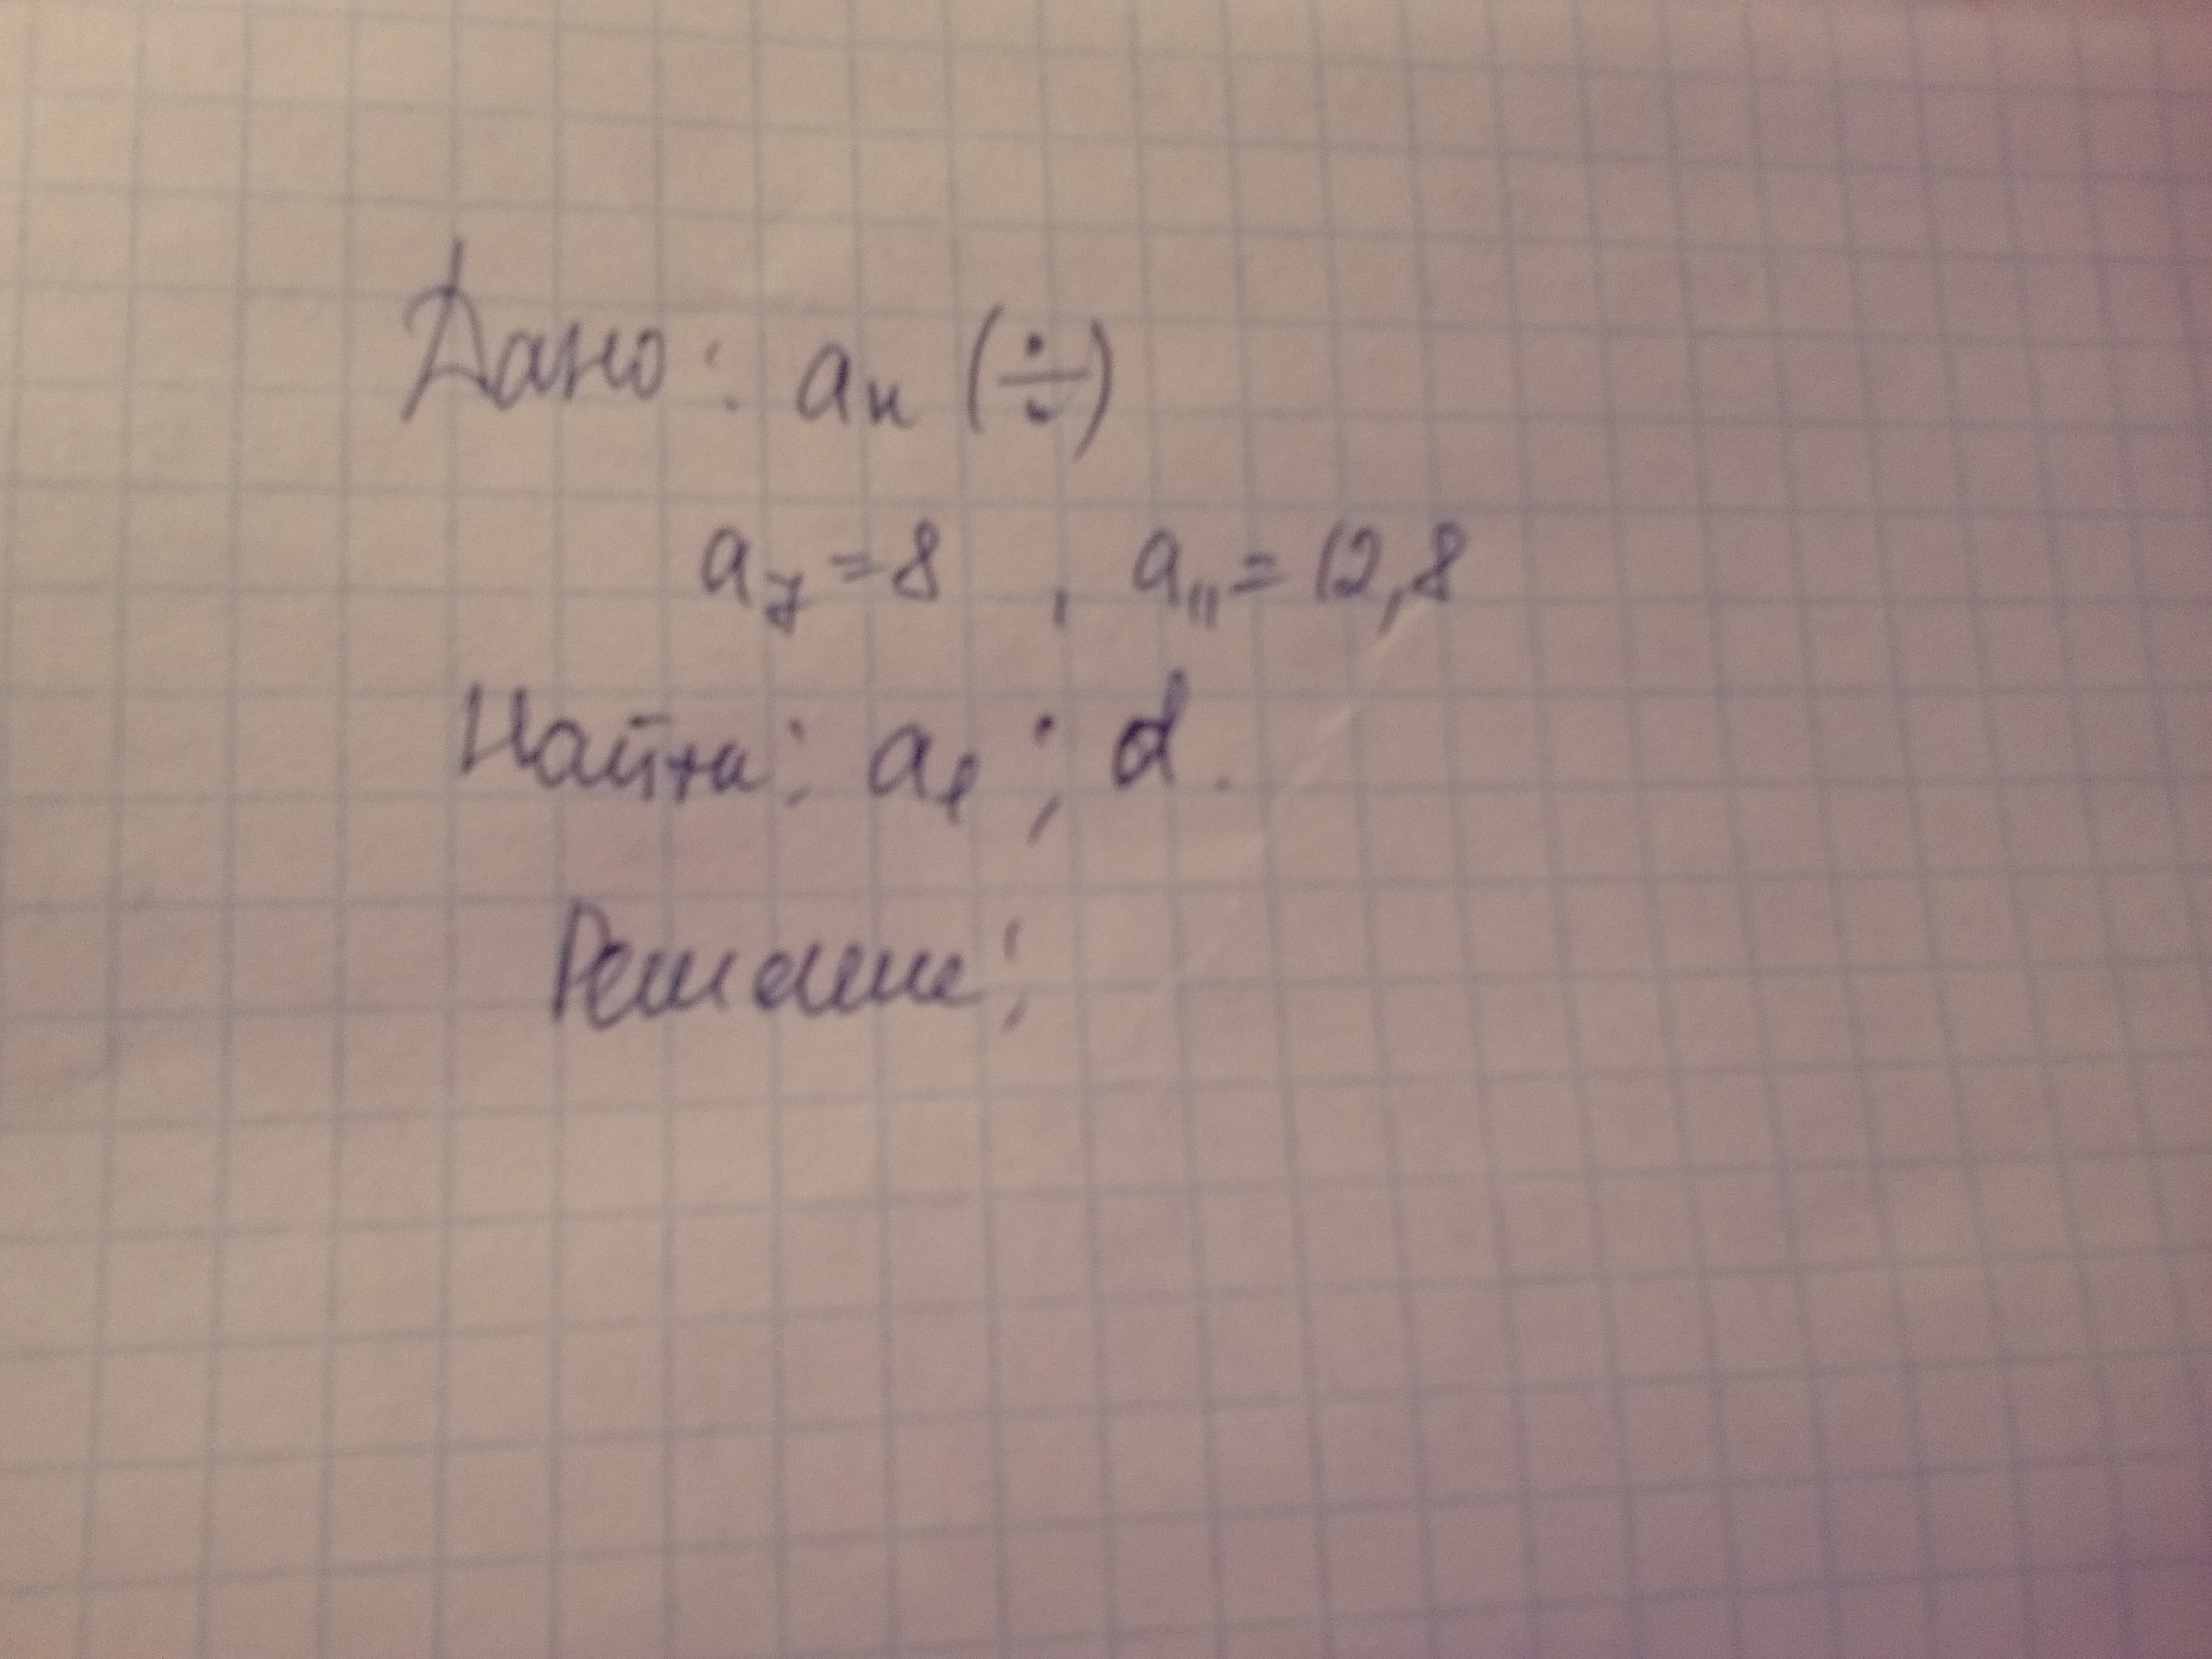 Дано: aн (÷)
a₇ = 8 , a₁₁ = 12,8
Найти: a₁ ; d.
Решение: